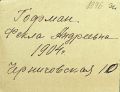 Гофман.
Фекла Андреевна
1904г.
Черниговская 10